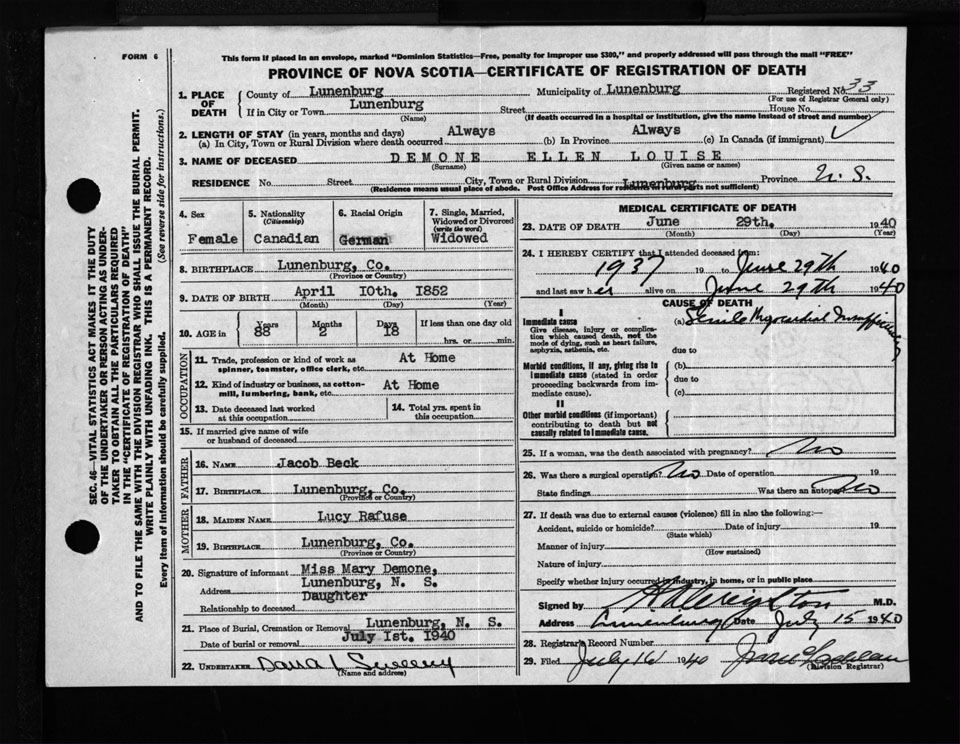 FORM 6
This form if placed in an envelope, marked "Dominion Statistics—Free, penalty for improper use $300," and properly addressed will pass through the mail "FREE"
PROVINCE OF NOVA SCOTIA—CERTIFICATE OF REGISTRATION OF DEATH
SEC. 46—VITAL STATISTICS ACT MAKES IT THE DUTY
OF THE UNDERTAKER OR PERSON ACTING AS UNDER-
TAKER TO OBTAIN ALL THE PARTICULARS REQUIRED
IN THE "CERTIFICATE OF REGISTRATION OF DEATH"
AND TO FILE THE SAME WITH THE DIVISION REGISTRAR WHO SHALL ISSUE THE BURIAL PERMIT.
WRITE PLAINLY WITH UNFADING INK. THIS IS A PERMANENT RECORD.
Every item of information should be carefully supplied. (See reverse side for instructions.)
1. PLACE OF DEATH
County of Lunenburg Municipality of Lunenburg Registered No. 33
(For use of Registrar General only)
If in City or Town Lunenburg Street House No.
(Name) (If death occurred in a hospital or institution, give the name instead of street and number)
2. LENGTH OF STAY (in years, months and days) Always Always
(a) In City, Town or Rural Division where death occurred (b) In Province (c) In Canada (if immigrant)
3. NAME OF DECEASED DEMONE ELLEN LOUISE
(Surname) (Given name or names)
RESIDENCE No. Street City, Town or Rural Division Lunenburg Province N. S.
(Residence means usual place of abode. Post Office Address for residents in rural parts not sufficient)
4. Sex Female
5. Nationality (Citizenship) Canadian
6. Racial Origin German
7. Single, Married, Widowed or Divorced (write the word) Widowed
8. BIRTHPLACE Lunenburg, Co.
(Province or Country)
9. DATE OF BIRTH April 10th. 1852
(Month) (Day) (Year)
10. AGE in Years 88 Months 2 Days 18 If less than one day old hrs. or min.
OCCUPATION
11. Trade, profession or kind of work as spinner, teamster, office clerk, etc. At Home
12. Kind of industry or business, as cotton-mill, lumbering, bank, etc. At Home
13. Date deceased last worked at this occupation
14. Total yrs. spent in this occupation
15. If married give name of wife or husband of deceased
FATHER
16. NAME Jacob Beck
17. BIRTHPLACE Lunenburg, Co.
(Province or Country)
MOTHER
18. MAIDEN NAME Lucy Rafuse
19. BIRTHPLACE Lunenburg, Co.
(Province or Country)
20. Signature of informant Miss Mary Demone,
Address Lunenburg, N. S.
Relationship to deceased Daughter
21. Place of Burial, Cremation or Removal Lunenburg, N. S.
Date of burial or removal July 1st. 1940
22. UNDERTAKER Sweeny
(Name and address)
MEDICAL CERTIFICATE OF DEATH
23. DATE OF DEATH June 29th. 1940
(Month) (Day) (Year)
24. I HEREBY CERTIFY that I attended deceased from:
1937 19 to June 29th 1940
and last saw her alive on June 29th 1940
CAUSE OF DEATH
I
Immediate cause (a) Senile Myocardial Insufficiency
Give disease, injury or complication which caused death, not the mode of dying, such as heart failure, asphyxia, asthenia, etc. due to
Morbid conditions, if any, giving rise to immediate cause (stated in order proceeding backwards from immediate cause). (b) due to (c)
II
Other morbid conditions (if important) contributing to death but not causally related to immediate cause.
25. If a woman, was the death associated with pregnancy? No
26. Was there a surgical operation? No Date of operation 19
State findings Was there an autopsy? No
27. If death was due to external causes (violence) fill in also the following:—
Accident, suicide or homicide? Date of injury 19
(State which)
Manner of injury
(How sustained)
Nature of injury
Specify whether injury occurred in industry, in home, or in public place
Signed by Creighton M.D.
Address Lunenburg Date July 15 1940
28. Registrar's Record Number
29. Filed July 16 1940
(Division Registrar)